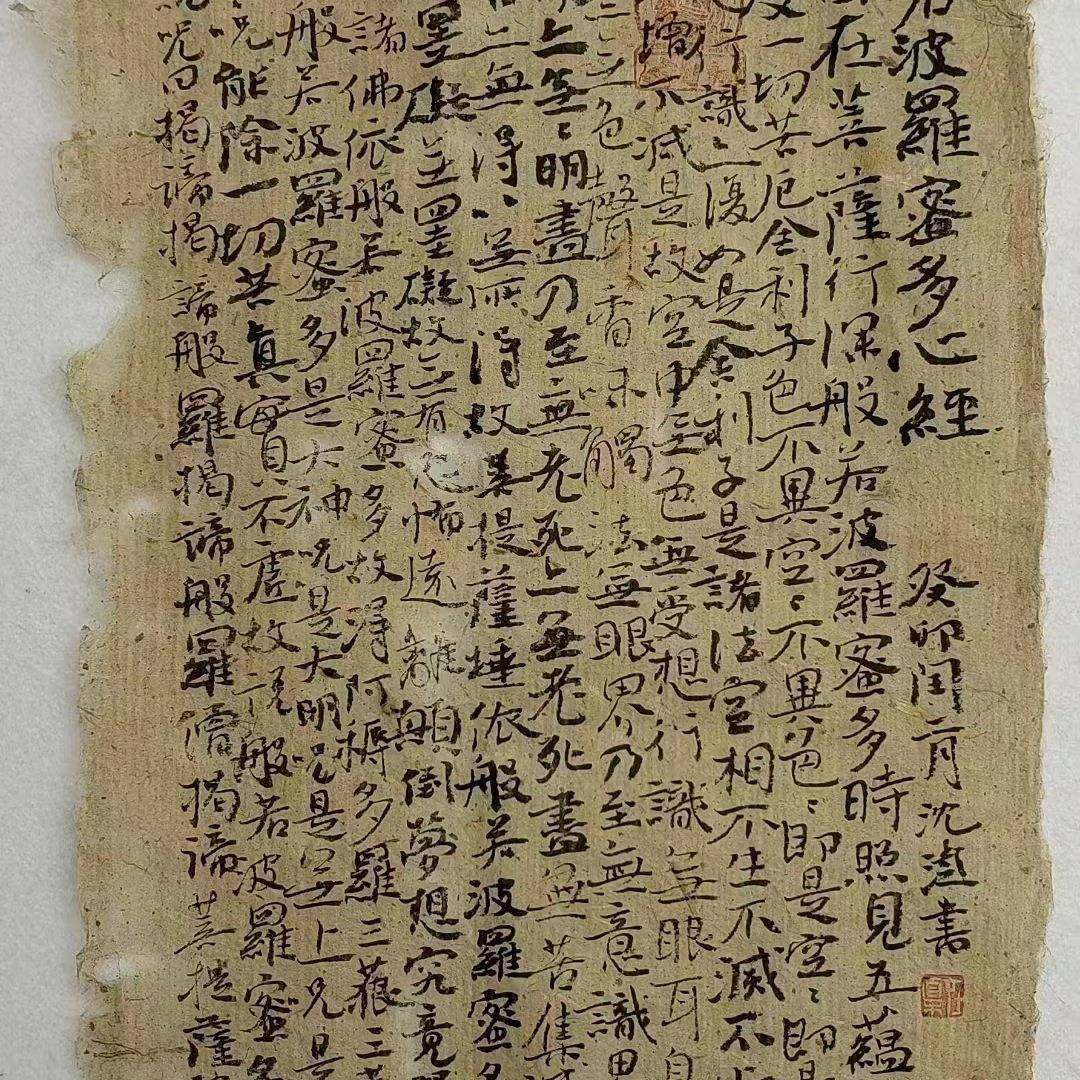 若波羅蜜多心經 癸卯閏二月沈書
在菩薩行深般若波羅蜜多時照見五蘊
一切苦厄舍利子色不異空〻不異色〻即是空〻即是
行識亦復如是舍利子是諸法空相不生不滅不
增不減是故空中無色無受想行識無眼耳鼻
色聲香味觸法無眼界乃至無意識界
亦無〻明盡乃至無老死亦無老死盡無苦集
亦無得以無所得故菩提薩埵依般若波羅蜜多
罣礙無罣礙故無有恐怖遠離顛倒夢想究竟涅
諸佛依般若波羅蜜多故得阿耨多羅三藐三菩
般若波羅蜜多是大神咒是大明咒是無上咒是
咒能除一切苦真實不虛故說般若波羅蜜多
咒曰揭諦揭諦般羅揭諦般羅僧揭諦菩提薩